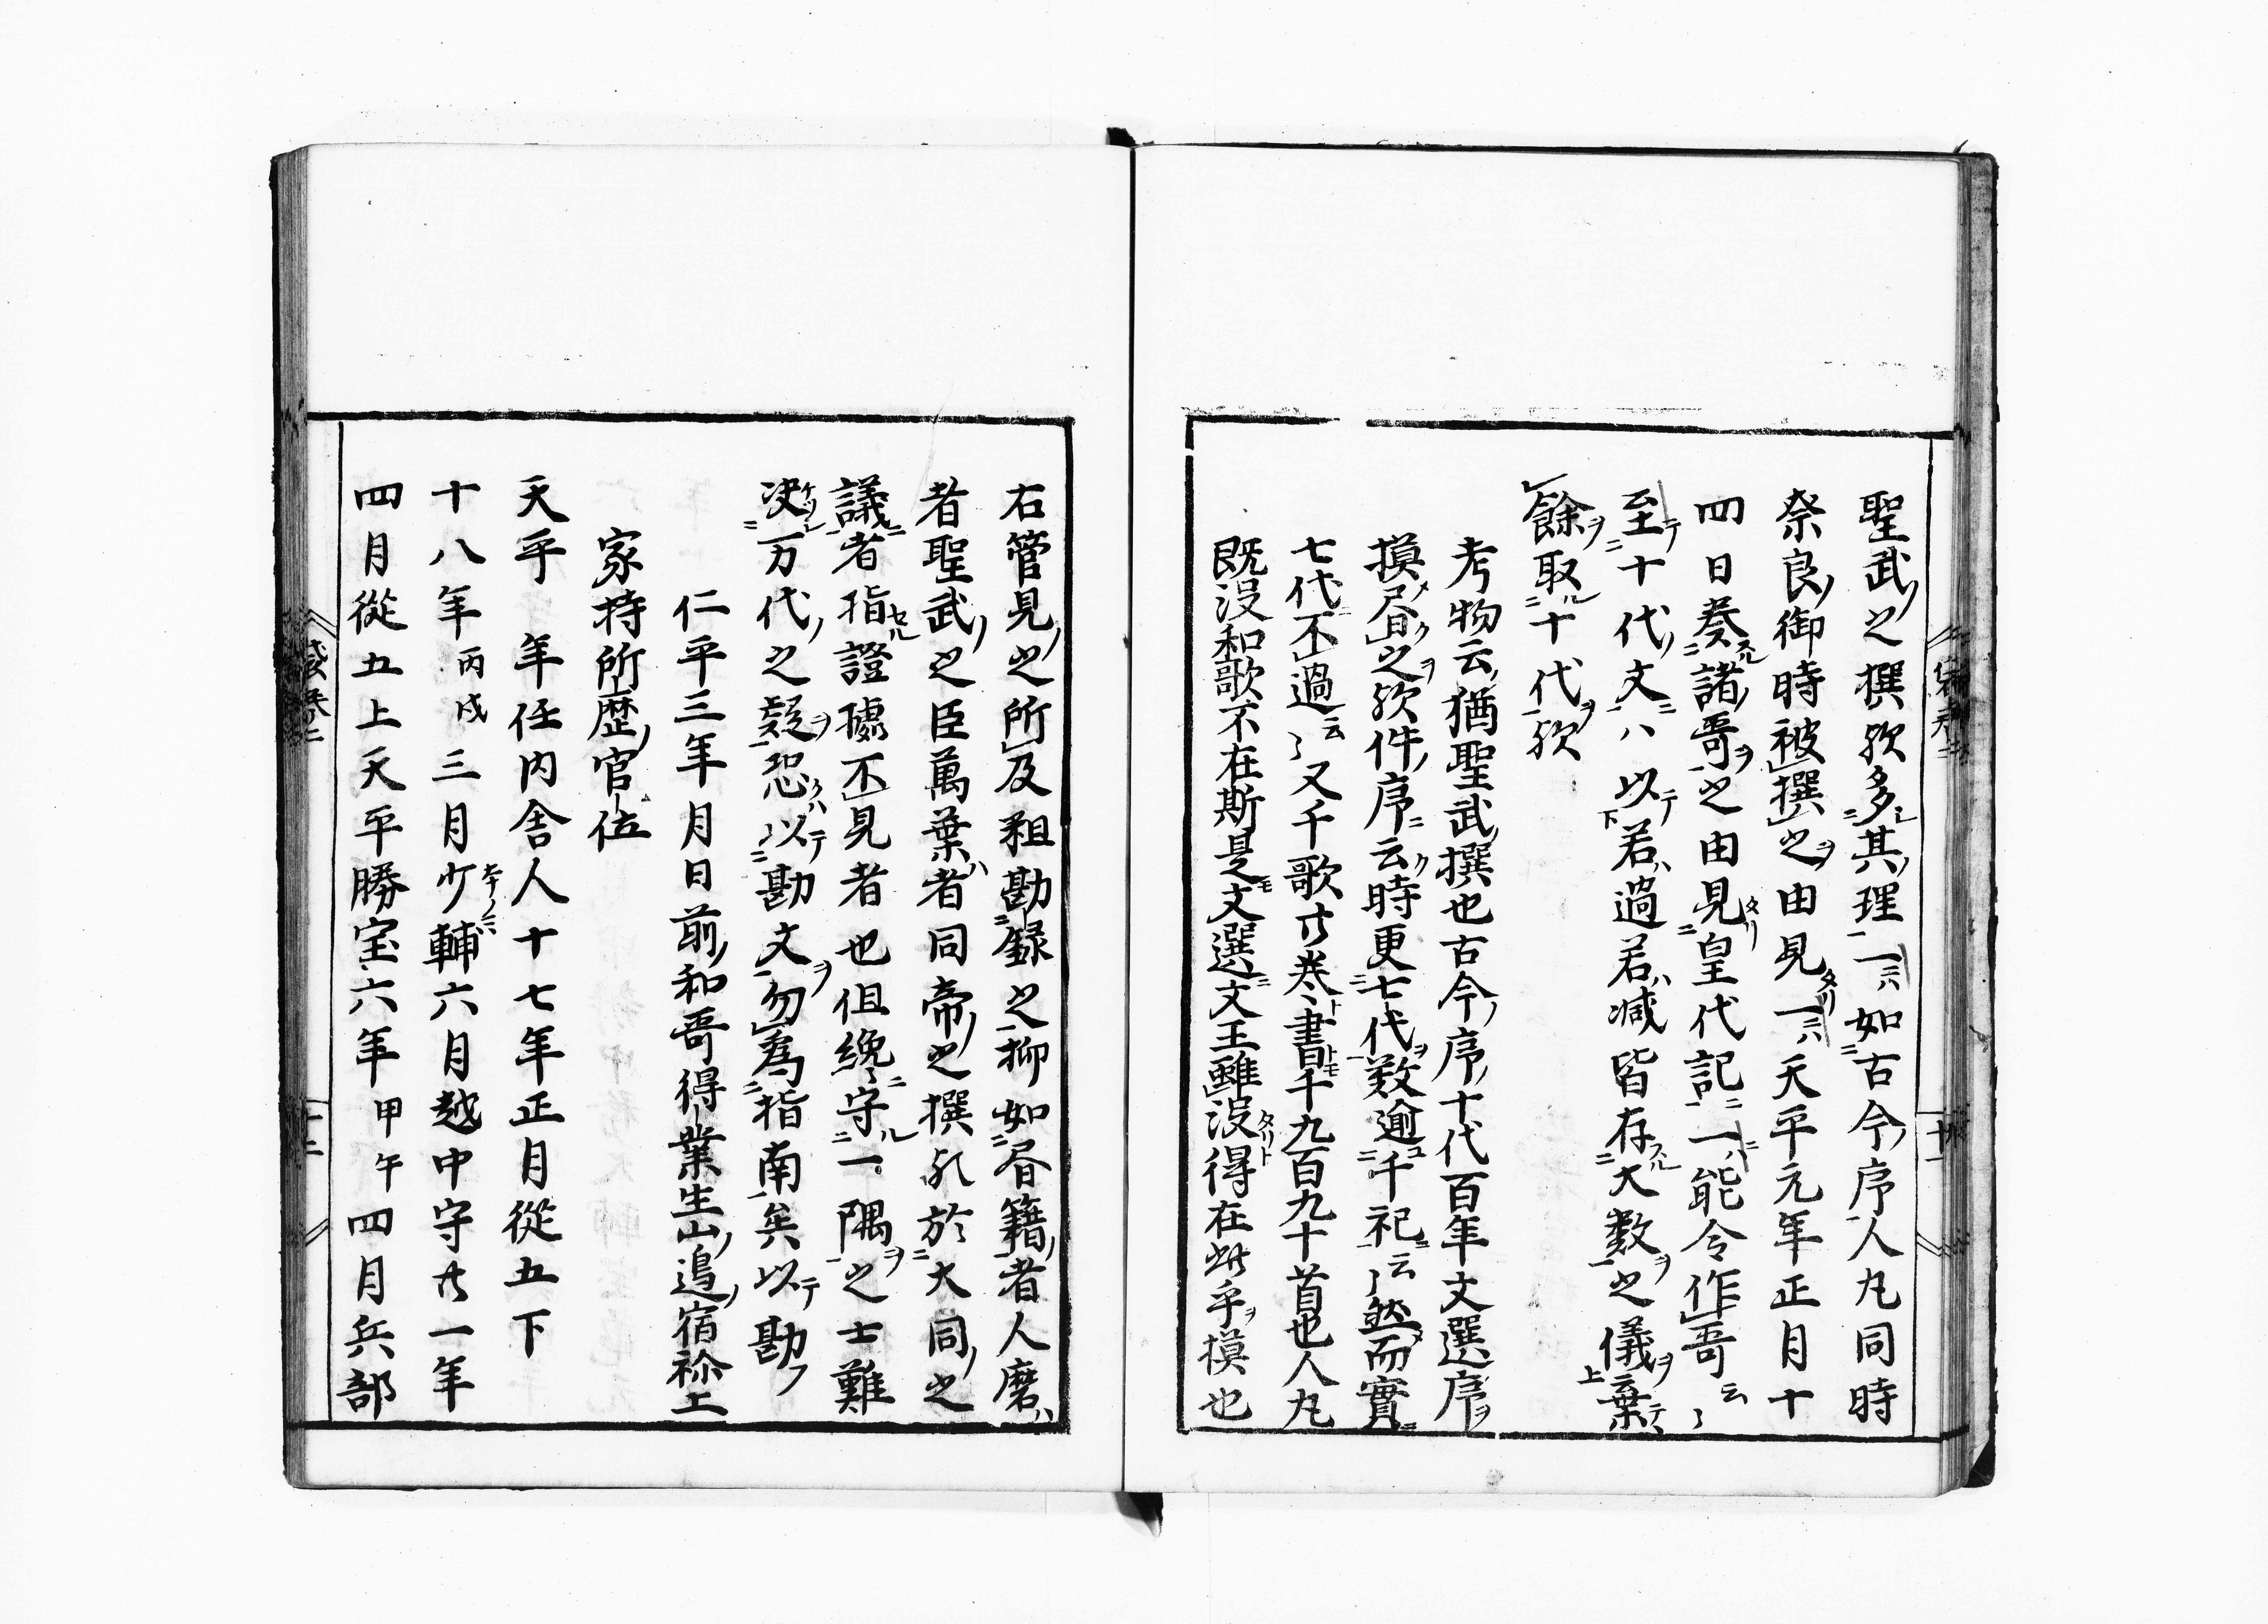 聖武之撰歟多其理一ニハ如古今序人丸同時
奈良御時被撰之由見一ニハ天平元年正月十
四日奏諸哥之由見皇代記一ニハ能令作哥云々
至十代文ハ以若過若减皆存大數之儀棄
餘取十代歟
考物云猶聖武撰也古今序十代百年文選序
摸昼之歟件序云時更七代数逾千祀云々然而實
七代不過云々又千歌廿巻書千九百九十首也人丸
既没和歌不在斯是文選文王雖没得在此乎摸也
右管見之所及粗勘録之抑如昼籍者人磨
者聖武之臣萬葉者同帝之撰歟於大同之
議者指證㨿不見者也但纔守一隅之士難
决万代之疑恐々以勘文勿為指南矣以勘
仁平三年月日前和哥得業生山邉宿祢上
家持所歴官位
天平 年任内舎人十七年正月從五下
十八年丙戌三月少輔六月越中守廿一年
四月從五上天平勝宝六年甲午四月兵部
十一
十二